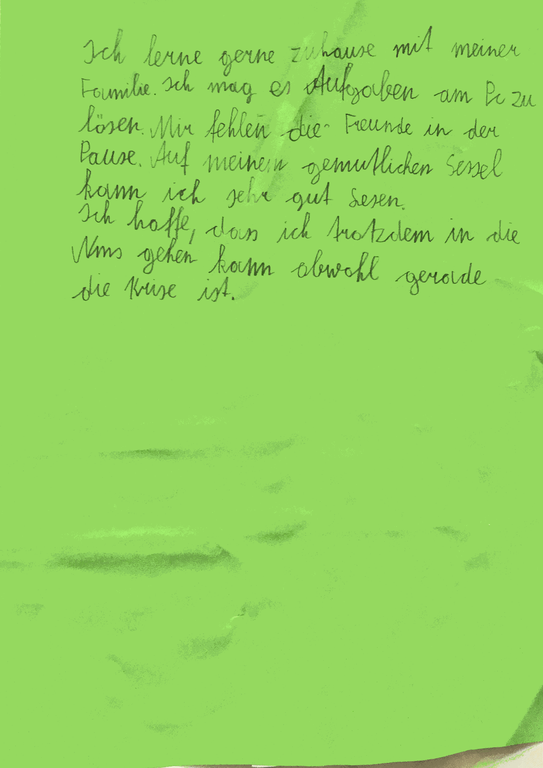 Ich lerne gerne zuhause mit meiner
Familie. Ich mag es Aufgaben am Pc zu
lösen. Mir fehlen die Freunde in der
Pause. Auf meinem gemutlichen Sessel
kann ich sehr gut Lesen.
Ich hoffe, dass ich trotzdem in die
Nms gehen kann obwohl gerade
die Krise ist.